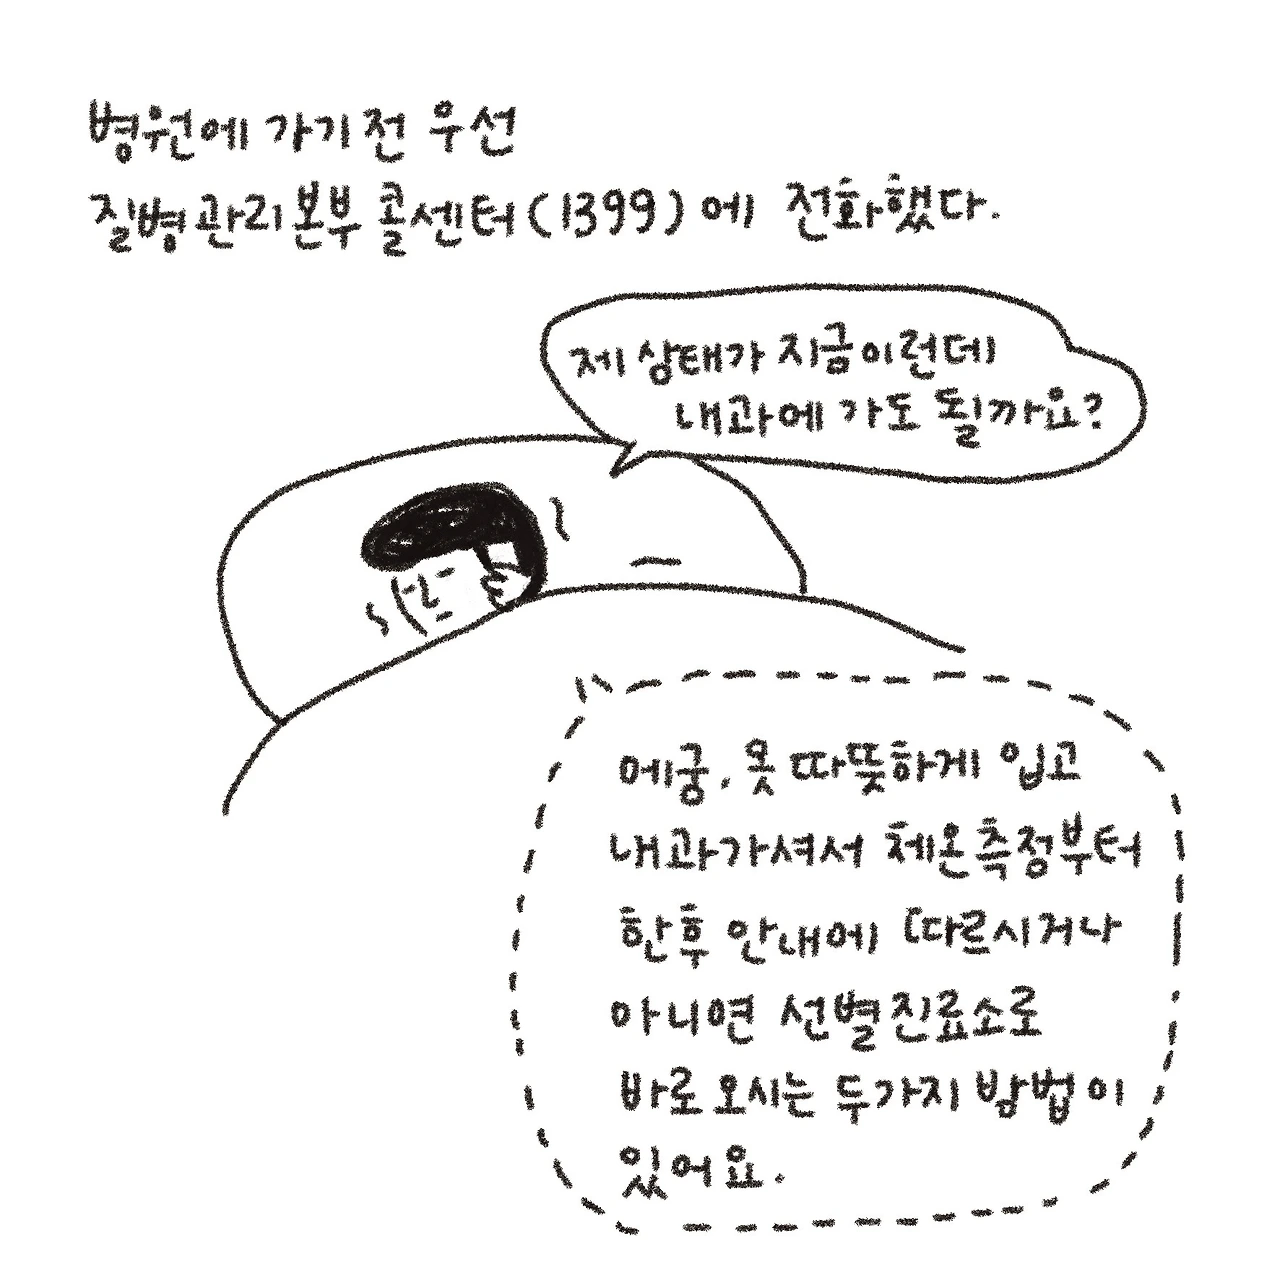 병원에 가기 전 우선
질병관리본부 콜센터(1399)에 전화했다.
제 상태가 지금 이런데
내과에 가도 될까요?
에궁, 옷 따뜻하게 입고
내과 가셔서 체온측정부터
한 후 안내에 따르시거나
아니면 선별진료소로
바로 오시는 두가지 방법이
있어요.